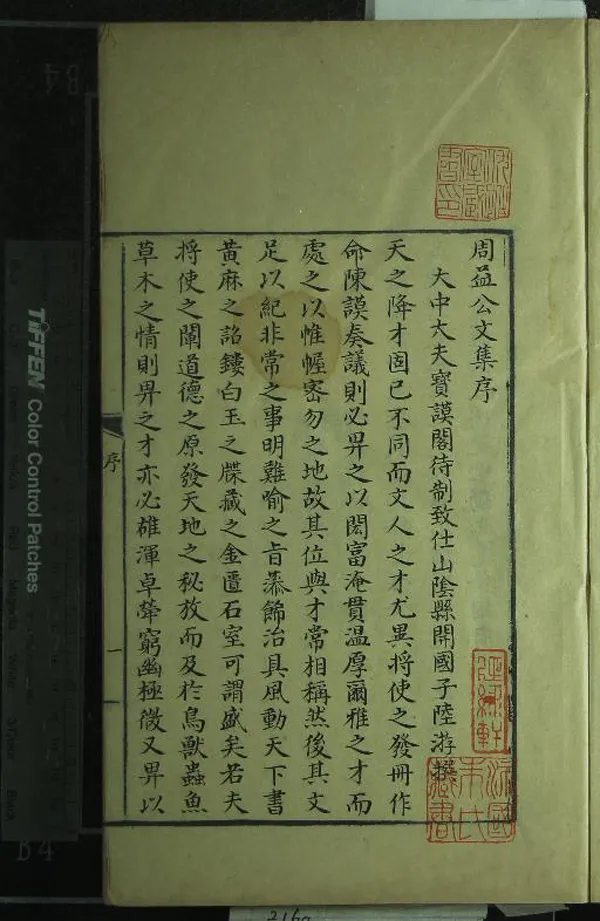 周益公文集序
大中大夫寶謨閣待制致仕山陰縣開國子陸游撰
天之降才固已不同而文人之才尤異將使之發冊作
命陳謨奏議則必畀之以閎富淹貫溫厚爾雅之才而
處之以帷幄密勿之地故其位與才常相稱然後其文
足以紀非常之事明難喻之旨黼飾治具風動天下書
黃麻之詔鏤白玉之牒藏之金匱石室可謂盛矣若夫
將使之闡道德之原發天地之秘放而及於鳥獸蟲魚
草木之情則畀之才亦必雄渾卓犖窮幽極微又畀以
序
一
TIFFEN Color Control Patches
B4
B4